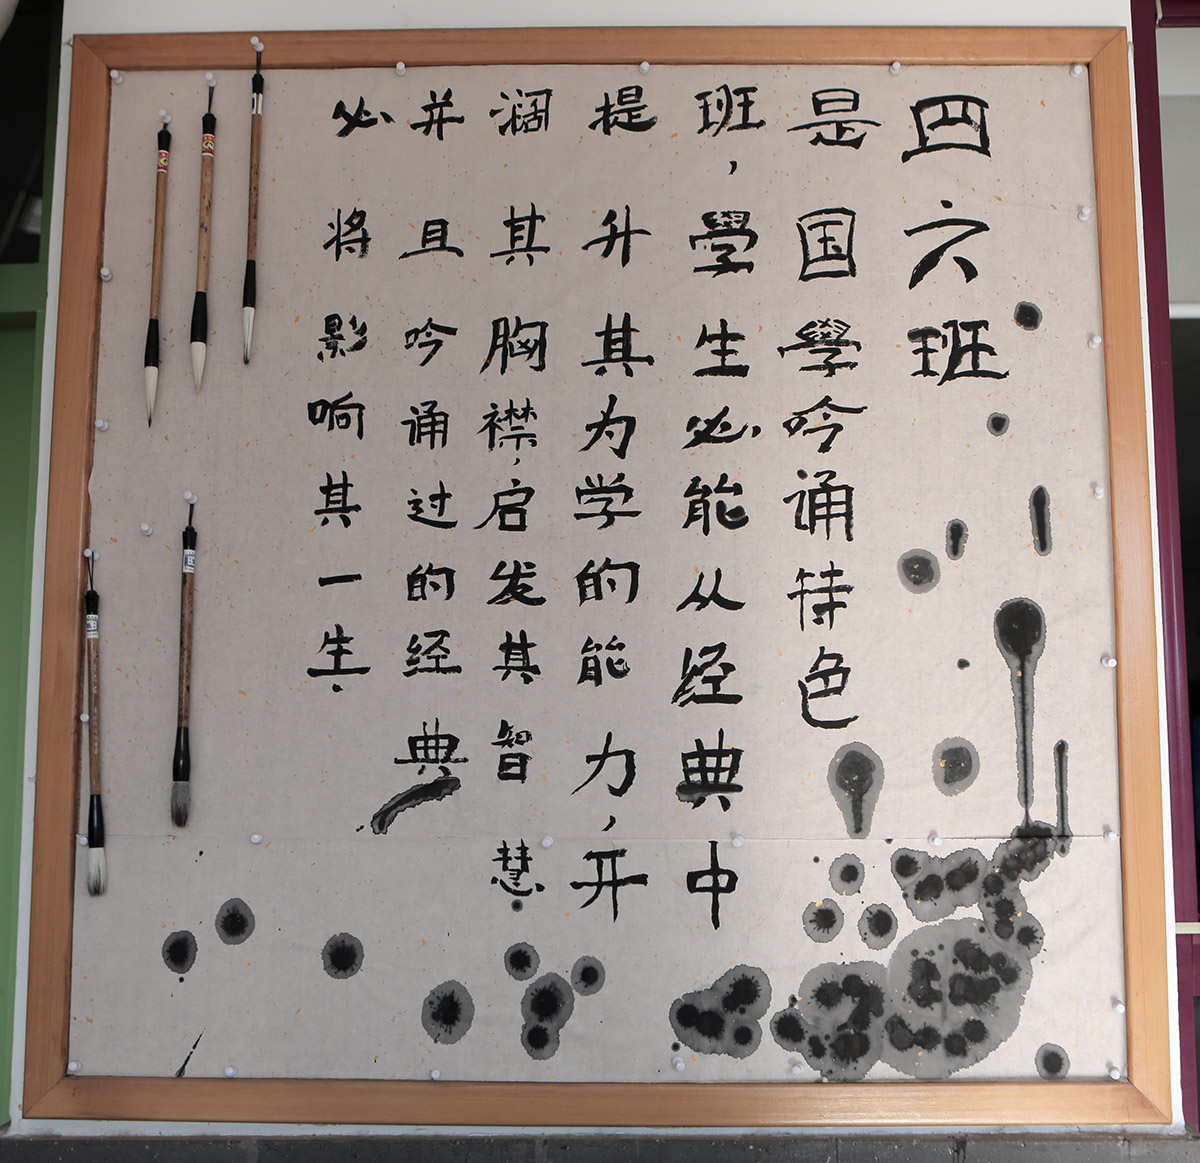 四六班
是国學吟诵特色
班，學生必能从经典中
提升其为学的能力，开
阔其胸襟，启发其智慧
并且吟诵过的经典
必将影响其一生.